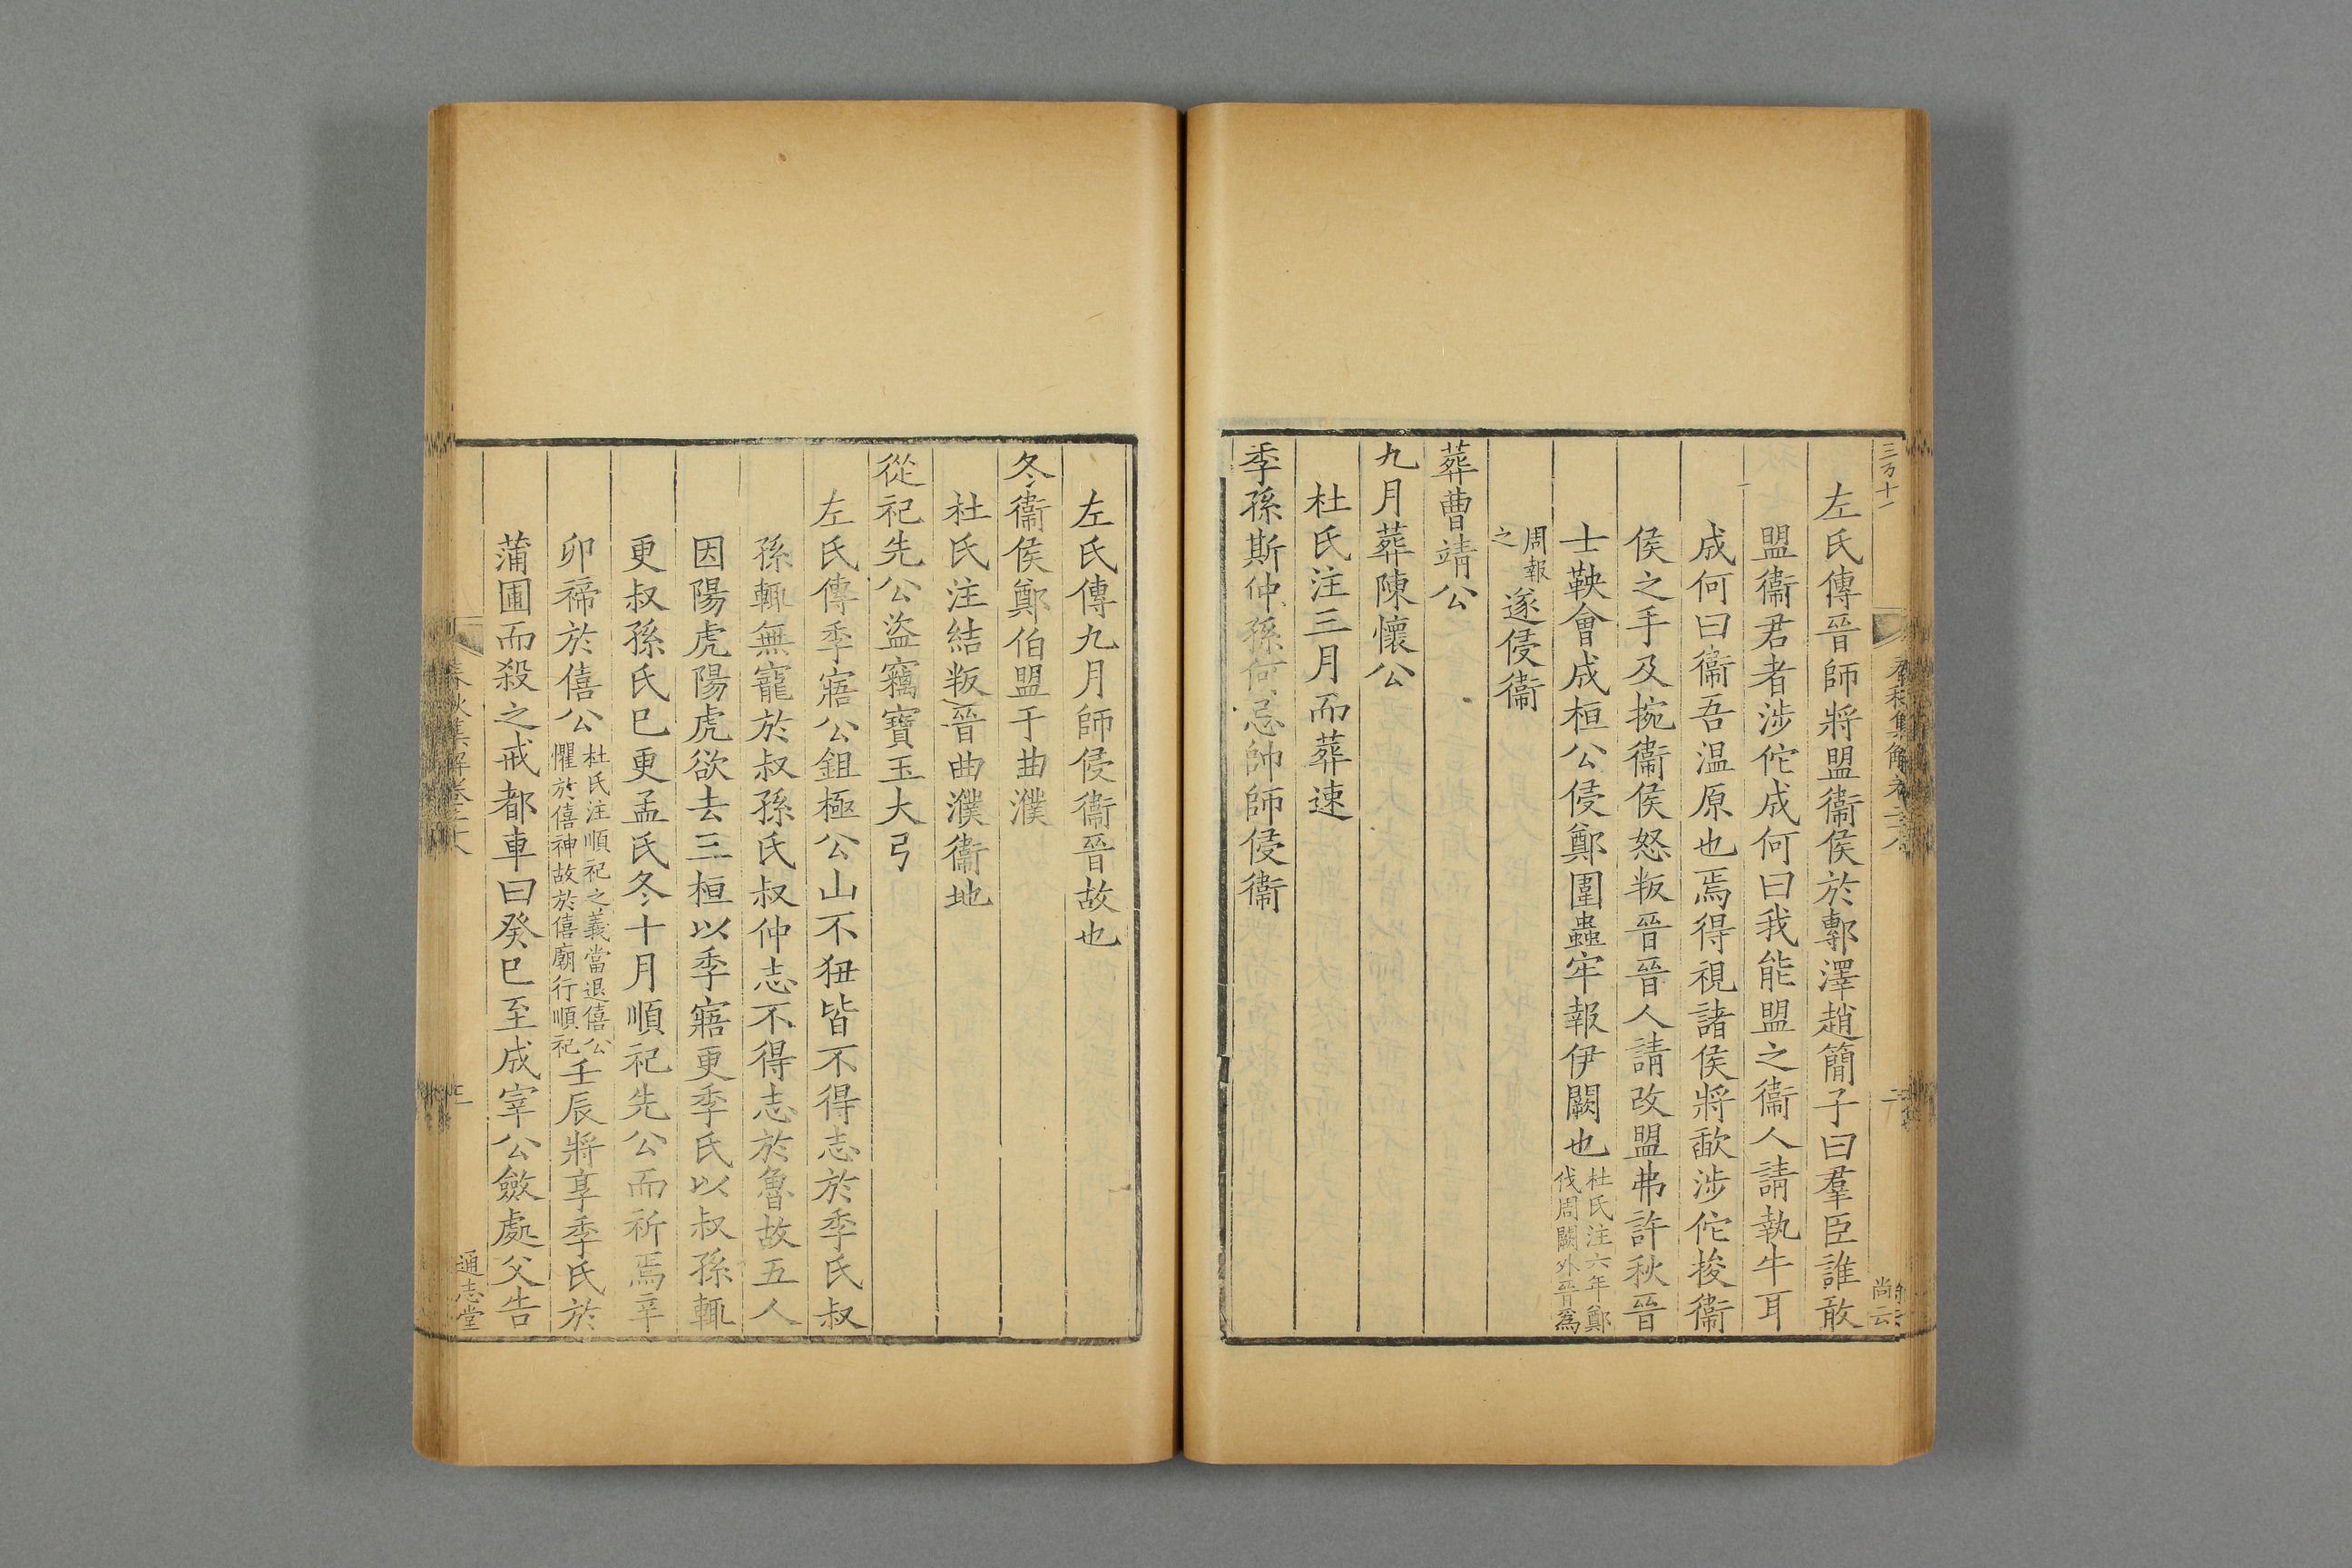 三万十一
左氏傳晉師將盟衞侯於鄟澤趙簡子曰羣臣誰敢
盟衞君者涉佗成何曰我能盟之衞人請執牛耳
成何曰衞吾温原也焉得視諸侯將歃涉佗捘衞
侯之手及捥衞侯怒叛晉晉人請改盟弗許秋晉
士鞅會成桓公侵鄭圍蟲牢報伊闕也杜氏注六年鄭伐周闕外晉爲
周報之遂侵衞
葬曹靖公
九月葬陳懷公
杜氏注三月而葬速
季孫斯仲孫何忌帥師侵衞
左氏傳九月師侵衞晉故也
冬衞侯鄭伯盟于曲濮
杜氏注結叛晉曲濮衞地
從祀先公盜竊寶玉大弓
左氏傳季寤公鉏極公山不狃皆不得志於季氏叔
孫輒無寵於叔孫氏叔仲志不得志於魯故五人
因陽虎陽虎欲去三桓以季寤更季氏以叔孫輒
更叔孫氏已更孟氏冬十月順祀先公而祈焉辛
卯禘於僖公杜氏注順祀之義當退僖公懼於僖神故於僖廟行順祀壬辰將享季氏於
蒲圃而殺之戒都車曰癸巳至成宰公斂處父告
通志堂